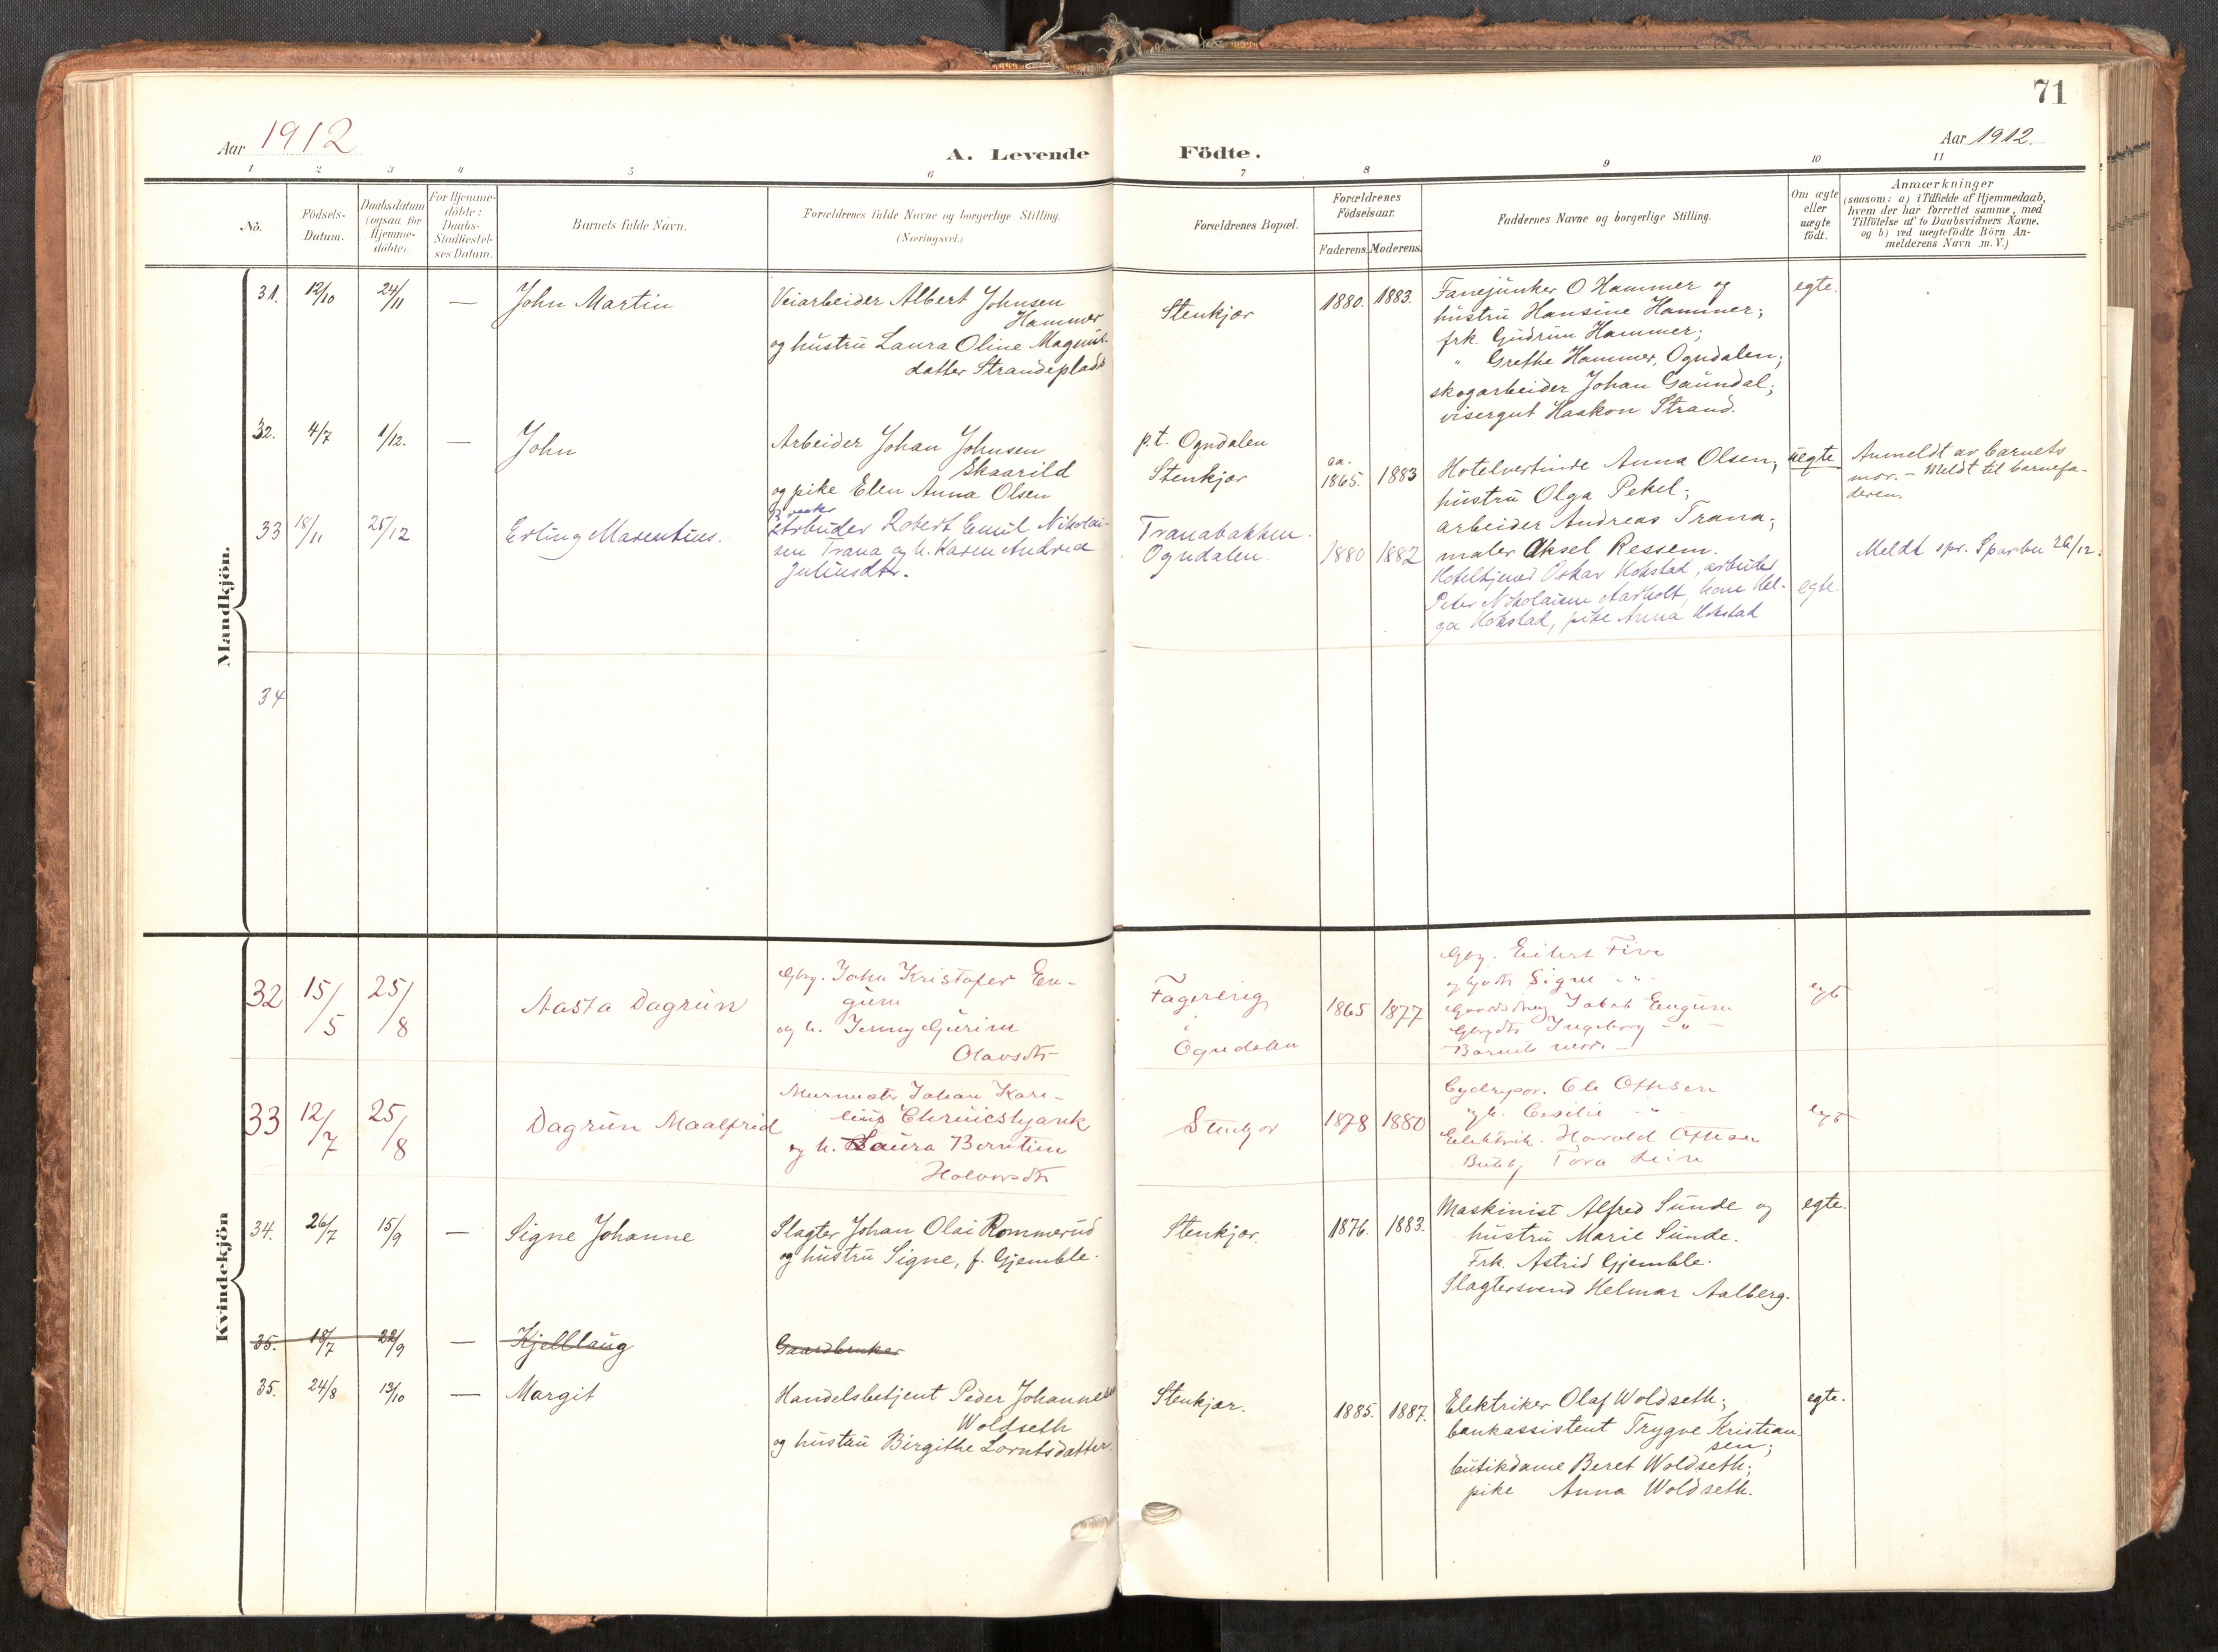 71
Aar 1912
A. Levende Födte.
Aar 1912.
1 2 3 4 5 6 7 8 9 10 11
No.
Födsels-
Datum.
Daabsdatum
(ogsaa for
Hjemme-
döbte).
For Hjemme-
döbte:
Daabs-
Stadfæstel-
ses Datum.
Barnets fulde Navn.
Forældrenes fulde Navne og borgerlige Stilling.
(Næringsvei.)
Forældrenes Bopæl.
Forældrenes
Födselsaar.
Faderens. Moderens.
Faddernes Navne og borgerlige Stilling.
Om ægte
eller
uægte
födt.
Anmærkninger
(saasom: a) i Tilfælde af Hjemmedaab,
hvem der har forrettet samme, med
Tilföielse af to Daabsvidners Navne.
og b) ved uægtefödte Börn An-
melderens Navn m. V.)
Mandkjön.
31. 12/10 24/11 — John Martin
Veiarbeider Albert Johnsen
Hammer
og hustru Laura Oline Magnus-
datter Strandeplads
Stenkjær
1880. 1883.
Fanejunker O. Hammer og
hustru Hansine Hammer;
frk. Gudrun Hammer;
" Grethe Hammer, Ogndalen;
skogarbeider Johan Gaundal;
visergut Haakon Strand.
egte.
32. 4/7 1/12. — John
Arbeider Johan Johnsen
Skaarild
og pike Elen Anna Olsen
p.t. Ogndalen
Stenkjær
ca.
1865. 1883
Hotelvertinde Anna Olsen;
hustru Olga Pekel;
arbeider Andreas Trana;
maler Aksel Ressem.
uegte
Anmeldt av barnets
mor. — Meldt til barnefa-
deren.
33 18/11 25/12 Erling Marentius.
Arbeider Robert Emil Nikolai-
sen Trana og h. Karen Andrea
Juliusdtr.
Tranabakken
Ogndalen.
1880 1882
Hoteltjener Oskar Hokstad, arbeider
Peter Nikolaisen Aarholt, kone Hel-
ga Hokstad, pike Anna Hokstad
egte.
Meldt spr. Sparbu 26/12.
34
Kvindekjön
32 15/5 25/8 Aasta Dagrun
Gbr. John Kristofer En-
gum
og h. Jenny Gurine
Olavsdtr
Ogndalen
1865 1877
Eilert Five
Signe - " -
Jakob Engum
Ingeborg - " -
Barnets mor.
egt
33 12/7 25/8 Dagrun Maalfrid
Murmester Johan Kare-
lius
og h. Laura Berntine
Halvorsdtr
Stenkjær
1878 1880
Ole Ottesen
og h. Cesilie - " -
Elektrik. Harald Ottesen
Tora
egt
34. 26/7 15/9 — Signe Johanne
Slagter Johan Olai Rommerud
og hustru Signe, f. Gjemble.
Stenkjær.
1876. 1883.
Maskinist Alfred Sunde og
hustru Marie Sunde.
Frk. Astrid Gjemble.
Slagtersvend Helmar Aalberg.
egte.
35. 18/7 22/9 — Kjellaug
Gaardbruker
35. 24/8 13/10 — Margit
Handelsbetjent Peder Johannesen
Woldseth
og hustru Birgithe Lorntsdatter.
Stenkjær.
1885. 1887.
Elektriker Olaf Woldseth;
bankassistent Trygve Kristian-
sen;
butikdame Beret Woldseth;
pike Anna Woldseth.
egte.